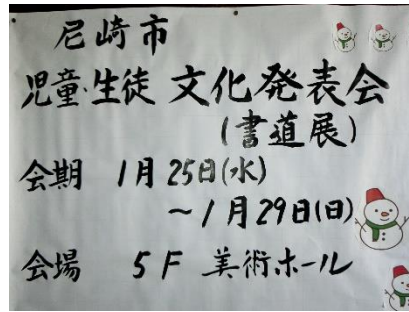 尼崎市
児童・生徒 文化発表会
(書道展)
会期 1月25日(水)
～1月29日(日)
会場 5F 美術ホール